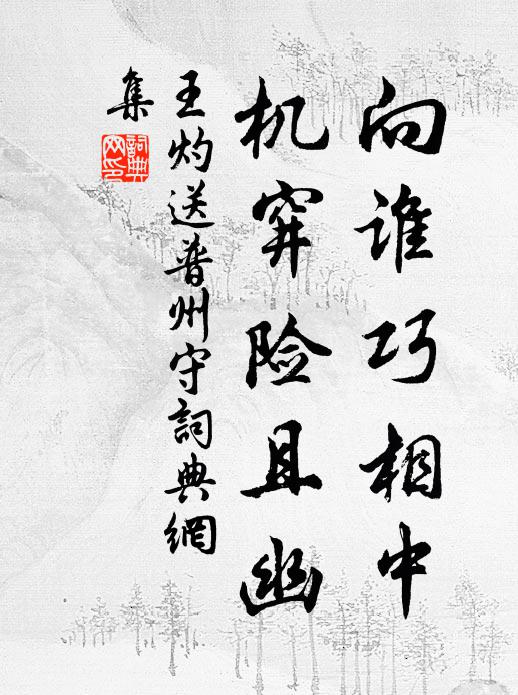 向谁巧相中
机穽险且幽
王灼送普州守詞典網
集
詞典
网印